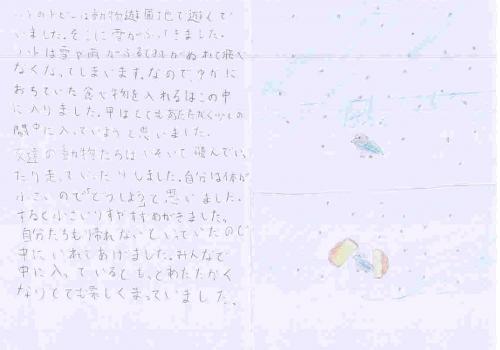 ハトのトビーは動物遊園地で遊んで
いました。そこに雪がふってきました。
ハトは雪や雨がふるとはねがぬれて飛べ
なくなってしまいます。なので、ゆかに
おちていた食べ物を入れるはこの中
に入りました。中はとてもあたたかく少しの
間中に入っていようと思いました。
友達の動物たちはいそいで飛んでいっ
たり走っていったりしました。自分は体が
小さいので「どうしよう」と思いました。
すると小さいりすやすずめがきました。
自分たちも帰れないといっていたので
中にいれてあげました。みんなで
中に入っているともっとあたたかく
なりとても楽しくまっていました。